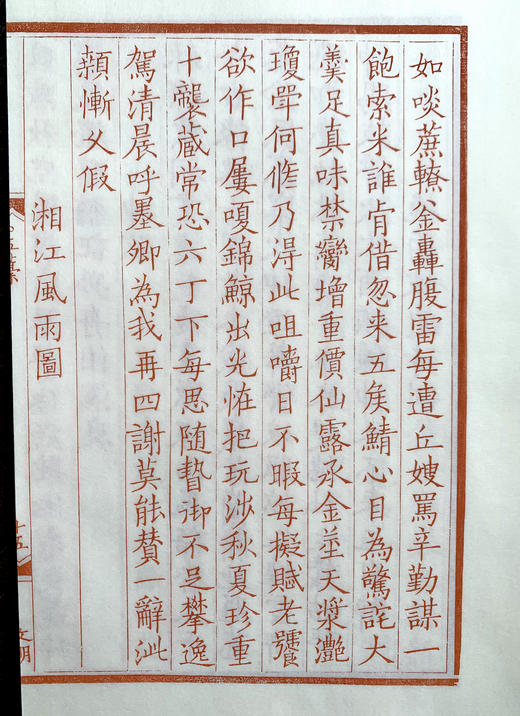 如啖蔗轑釜轟腹雷每遭丘嫂罵辛勤謀一
飽索米誰肯借忽来五矦鯖心目為驚詫大
羹足真味禁臠增重價仙露承金莖天漿灧
瓊斝何修乃淂此咀嚼日不暇每擬賦老饕
欲作口屢嗄錦鯨出光恠把玩涉秋夏珍重
十襲蔵常恐六丁下每思随蟄御不足攀逸
駕清晨呼墨卿為我再四謝莫能賛一辭泚
顙慚乂假
湘江風雨圖